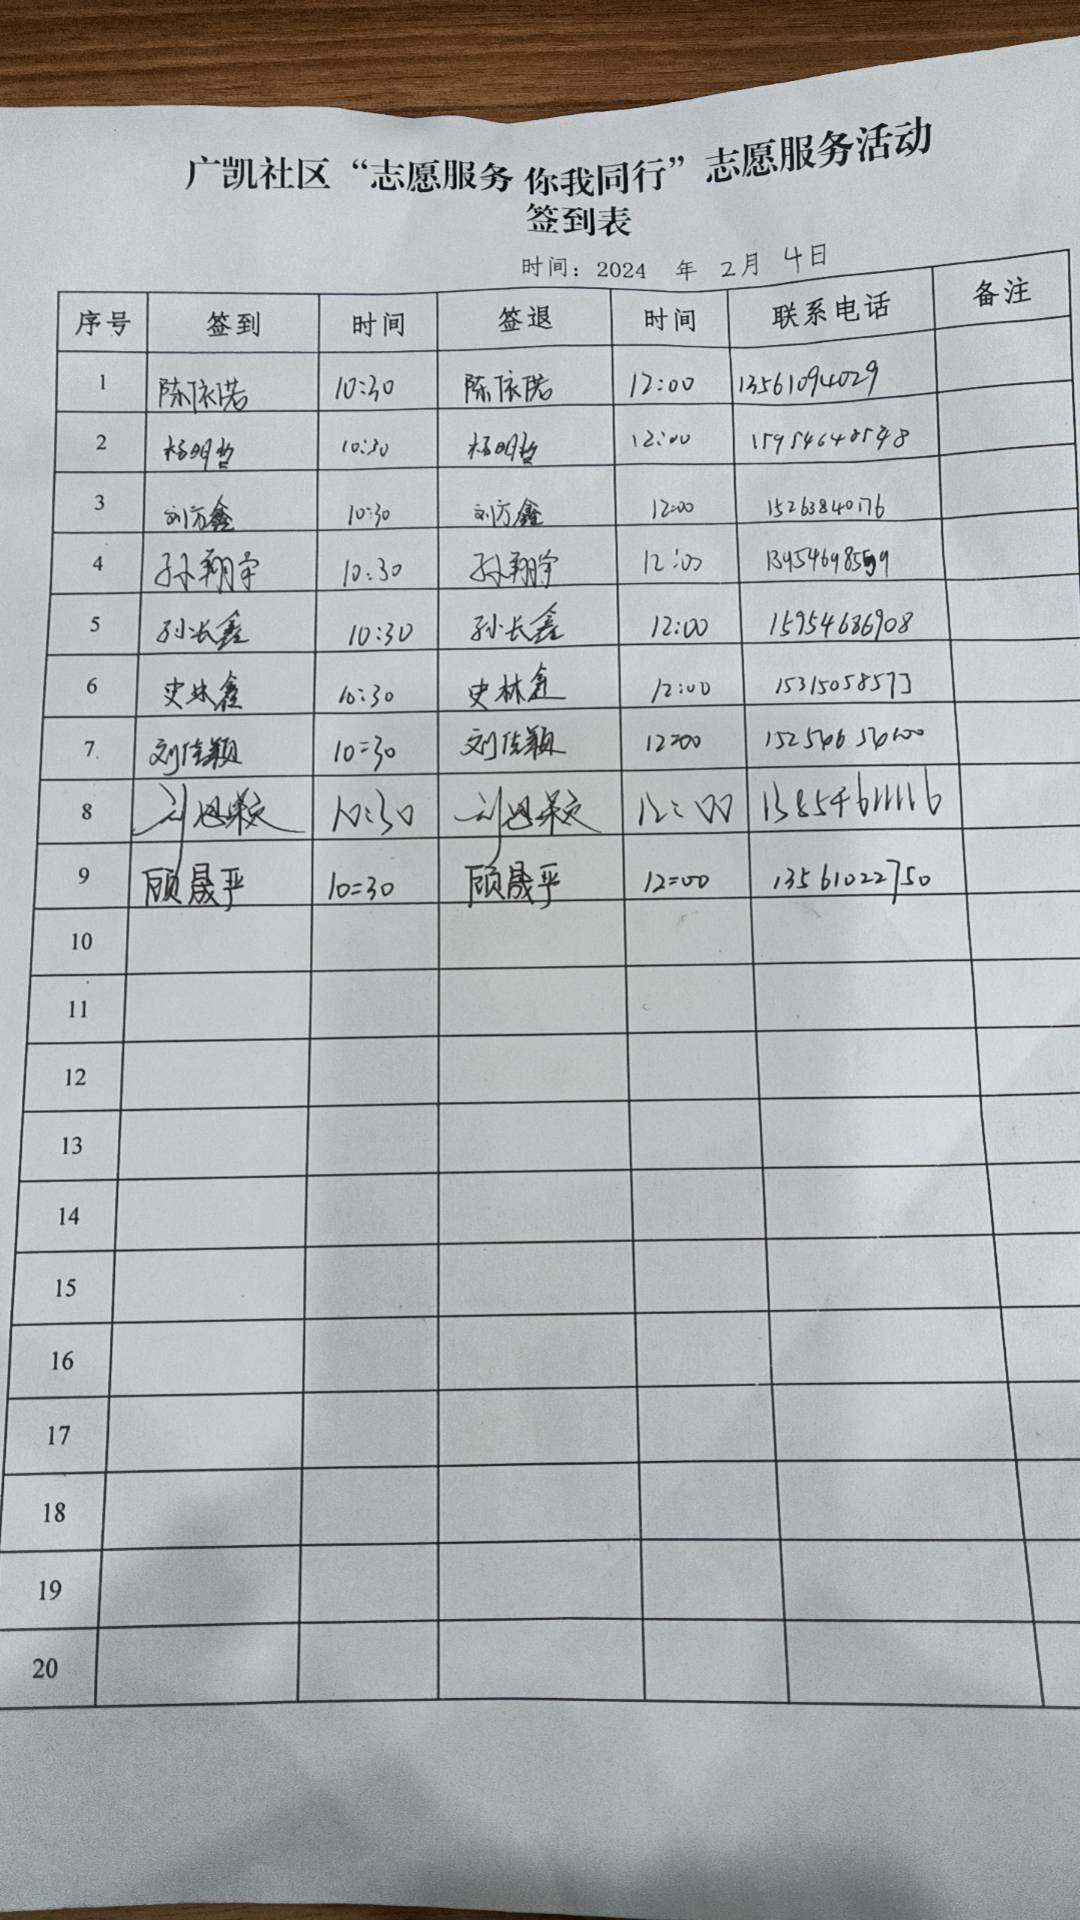 广凯社区“志愿服务 你我同行”志愿服务活动
签到表
时间：2024 年 2月 4日
序号 签到 时间 签退 时间 联系电话 备注
1 陈依诺 10:30 陈依诺 12:00 13561094029
2 杨明哲 10:30 杨明哲 12:00 15954640548
3 刘方鑫 10:30 刘方鑫 12:00 15263840176
4 孙翔宇 10:30 孙翔宇 12:00
5 孙长鑫 10:30 孙长鑫 12:00 15954686908
6 史林鑫 10:30 史林鑫 12:00 15315058573
7 刘佳颖 10:30 刘佳颖 12:00
8 10:30 12:00
9 顾晟平 10:30 顾晟平 12:00 13561022750
10
11
12
13
14
15
16
17
18
19
20